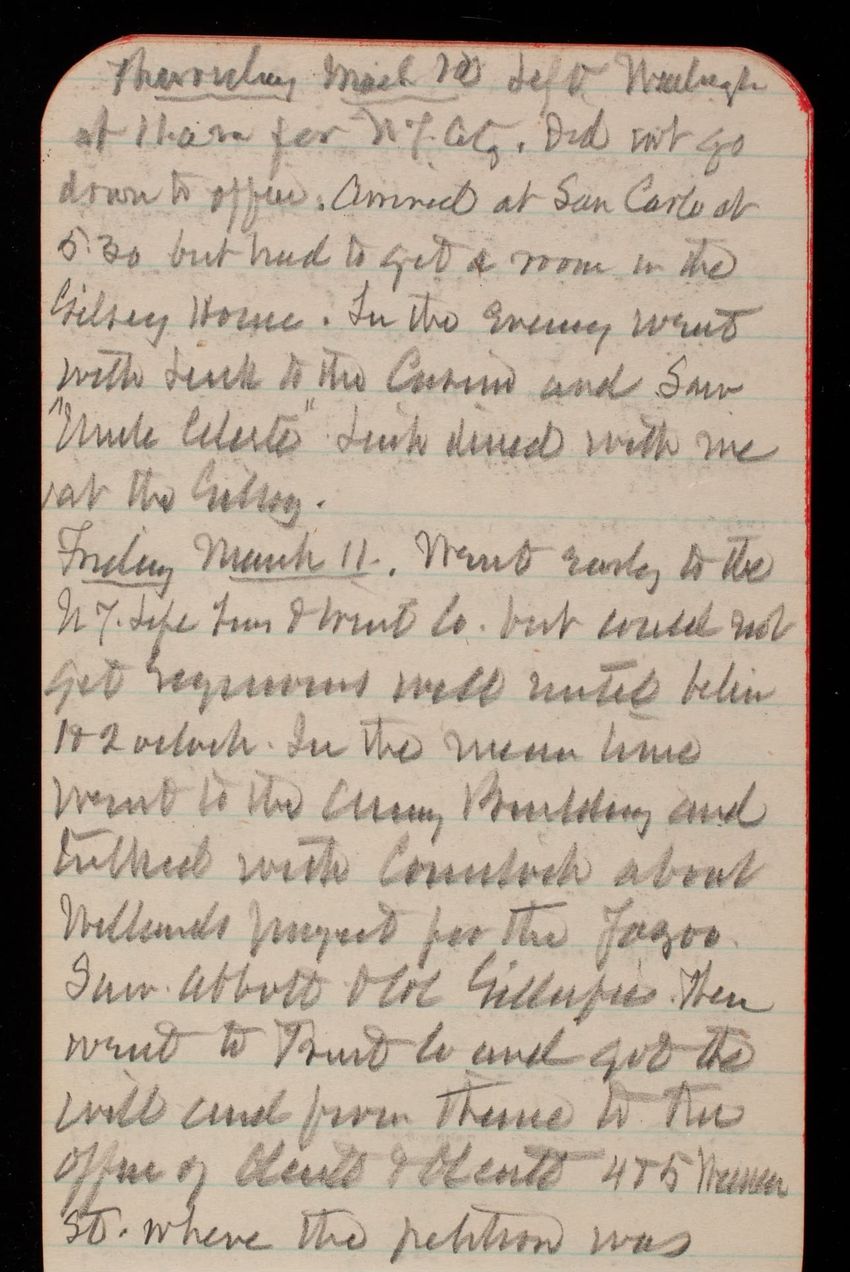 Thursday March 10 Left
at 11 a.m for N.Y. City. Did not go
down to office. Arrived at San Carlo at
5.30 but had to get a room in the
Gilsey House. In the Evening went
with Link to the Casino and Saw
"Uncle Celestin" Link dined with me
at the Gilsey.
Friday March 11. Went Early to the
N.Y. Life Ins & Trust Co. but could not
get will until
1 or 2 oclock. In the mean time
went to the Army Building and
talked with Comstock about
project for the Yazoo.
Saw Abbott & Col Gillespie. Then
went to Trust Co and got the
will and from thence to the
office of Olcott & Olcott 4 & 5 Warren
St. where the petition was